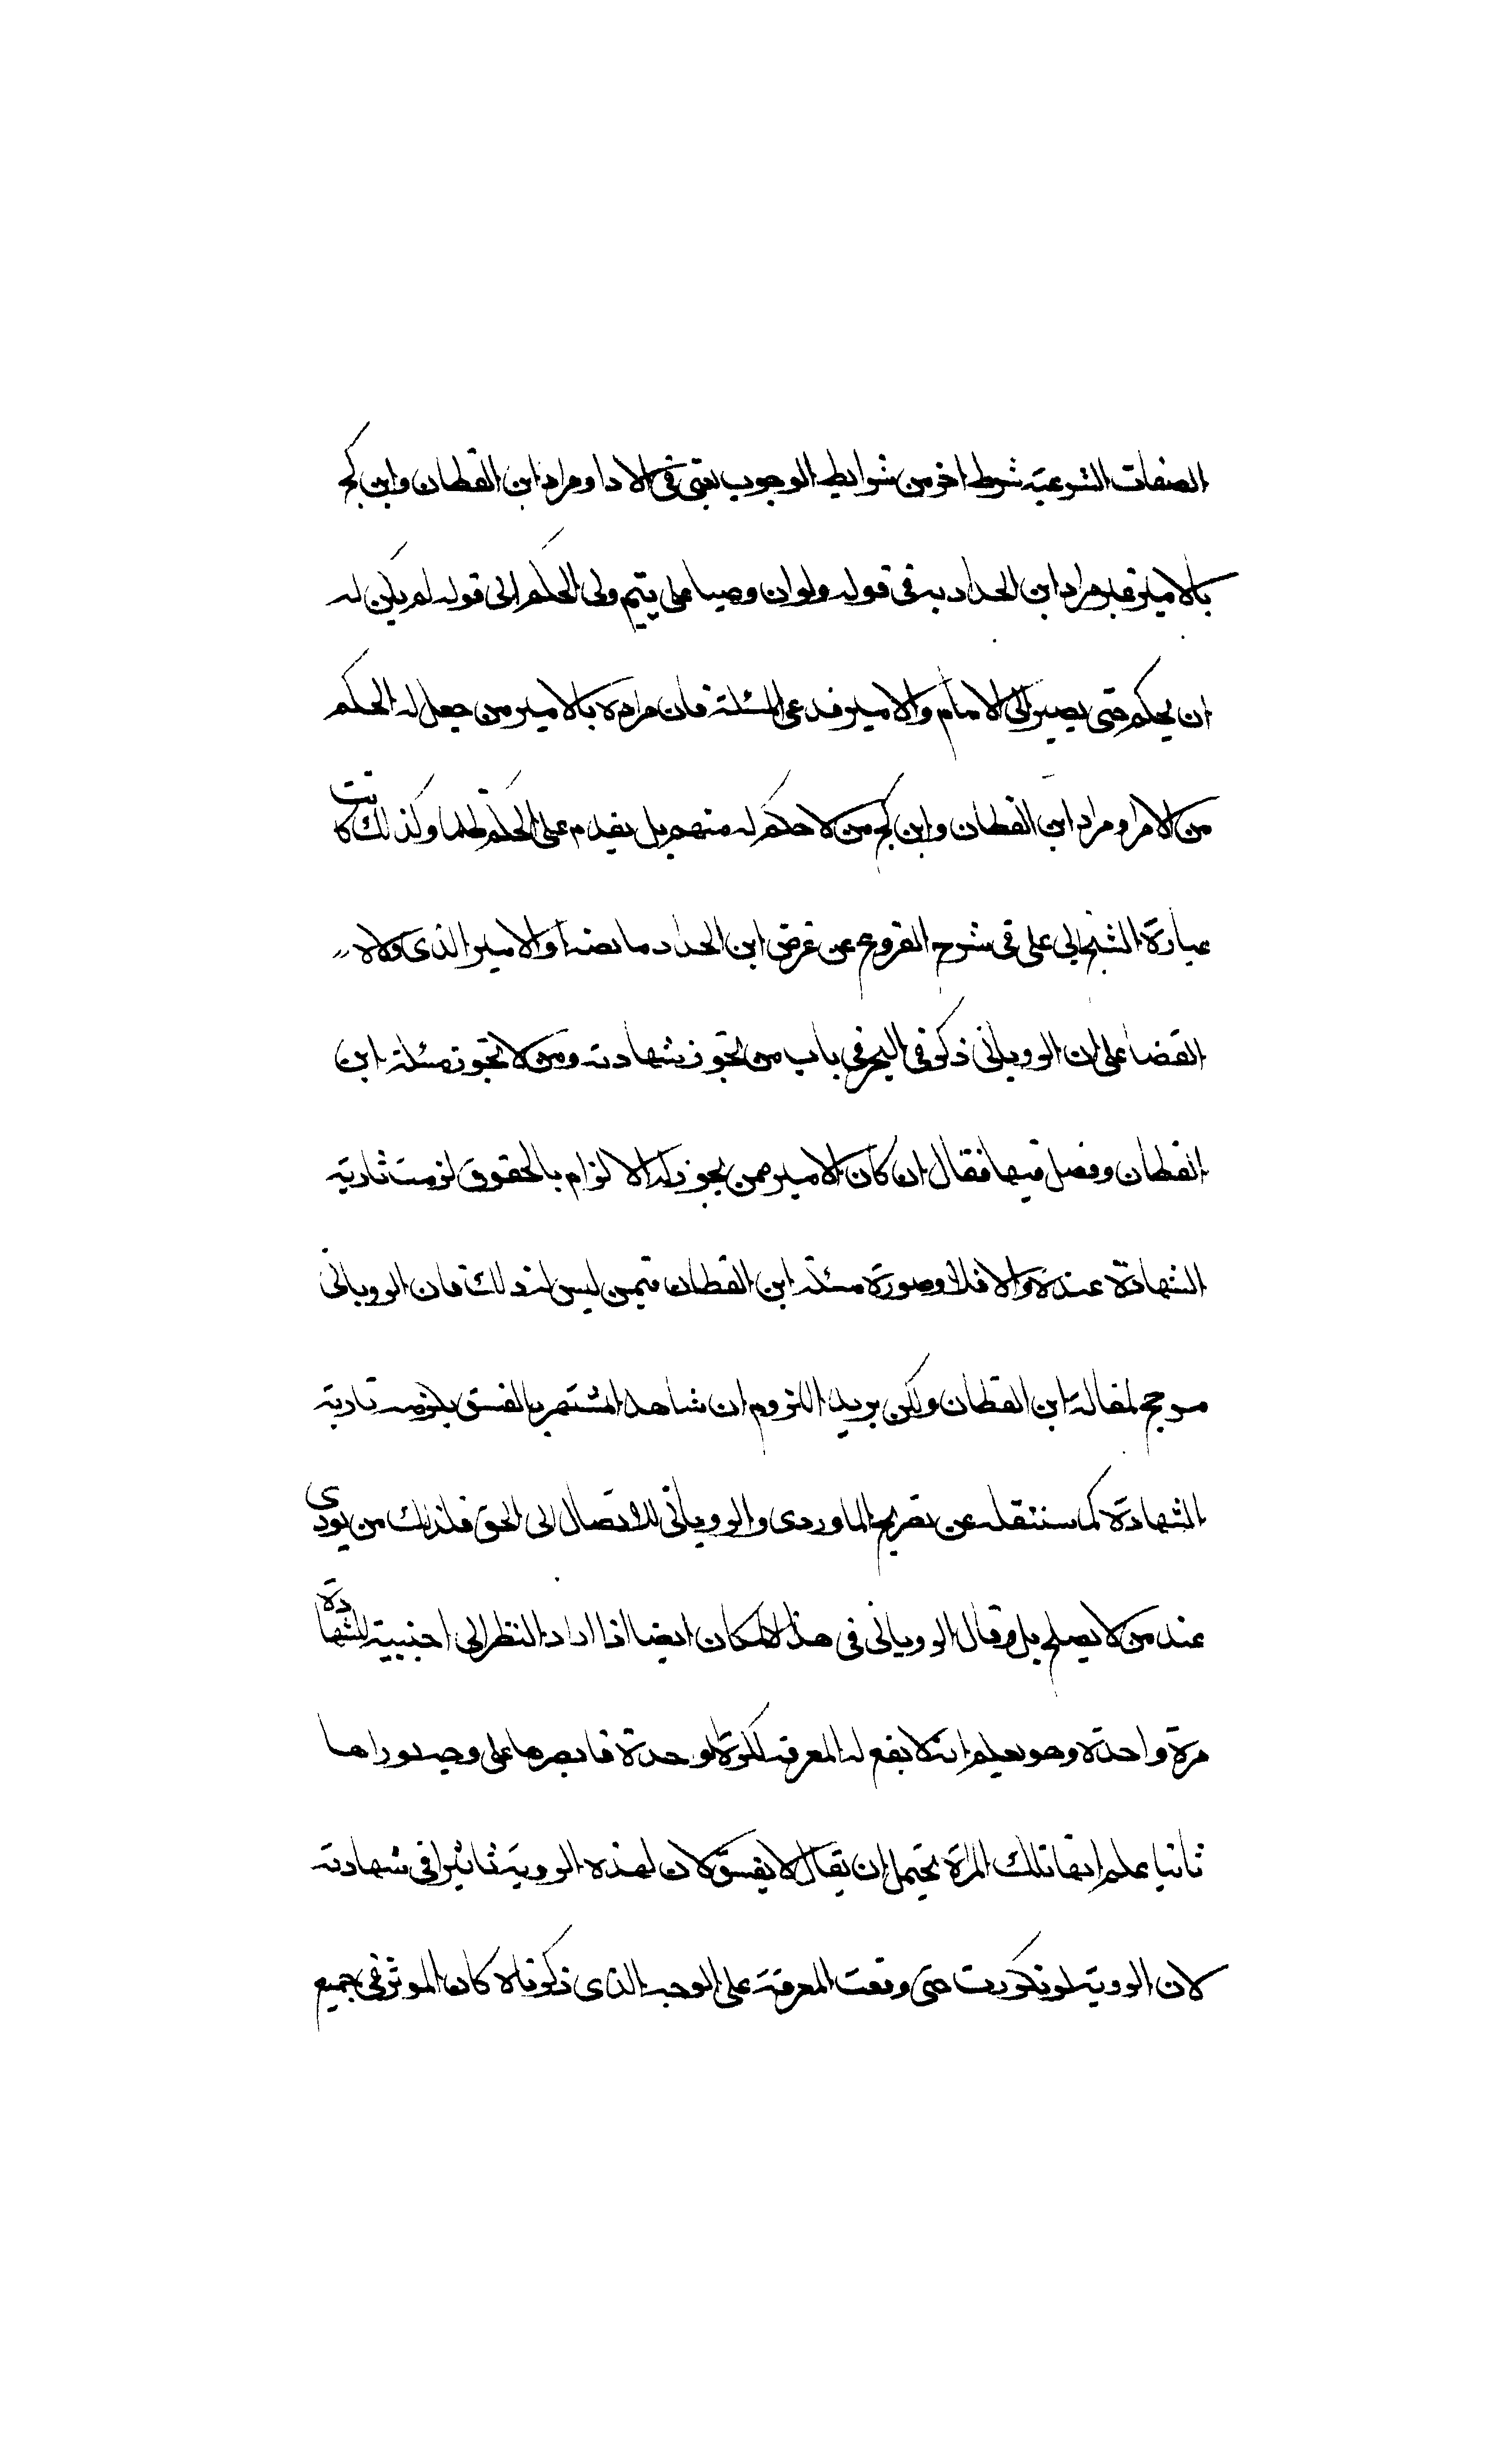 الصفات الشرعية شرط اخر من شرايط الوجوب يعنى فى الادا ومراد ابن القطان وابن كج
بالامير غير مراد ابن الحداد به فى قوله ولو ان وصيا على يتيم ولى الحكم الى قوله لم يكن له
ان يحكم حتى يصير الى الامام والامير فيدعى المسئلة فان مراده بالامير من جعل له الحكم
من الامرا ومراد ابن القطان وابن كج من لا حكم له منهم بل يقدم على الحكم ظلما وكذلك كانت
عبارة الشيخ ابى على فى شرح الفروع عن غرض ابن الحداد ما نصه او الامير الذى ولاه
القضا على ان الرويانى ذكر فى البحر فى باب من تجوز شهادته ومن لا تجوز مسئلة ابن
القطان وفصل فيها فقال ان كان الامير ممن يجوز له الالزام بالحقوق لزمت تادية
الشهادة عنده والا فلا وصورة مسئلة ابن القطان فيمن ليس له ذلك فان الرويانى
مرجح لمقالة ابن القطان ولكن يريد اللزوم ان شاهد المشتهر بالفسق يلزمه تادية
الشهادة كما سننقله عن تصريح الماوردى والرويانى للاتصال الى الحق فلذلك من يودى
عند من لا يصلح بل وقال الرويانى فى هذا المكان ايضا اذا اراد النظر الى اجنبية للشهادة
مرة واحدة وهو يعلم انه لا يقع له المعرفة بالمرة الوحدة فابصرها على وجه لو راها
ثانيا علم انها تلك المراة يحتمل ان يقال لا يفسق لان لهذه الروية تاثيرا فى شهادته
لان الروية لو تكررت حتى وقعت المعرفة على الوجه الذى ذكرناه كان الموثر فى جميع